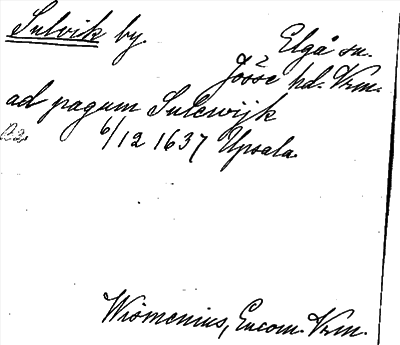 Sulvik by.
Elgå sn.
Jösse hd. Vrm.
ad pagum Sulewijk
6/12 1637 Upsala.
Wiömenius, Encom. Vrm.